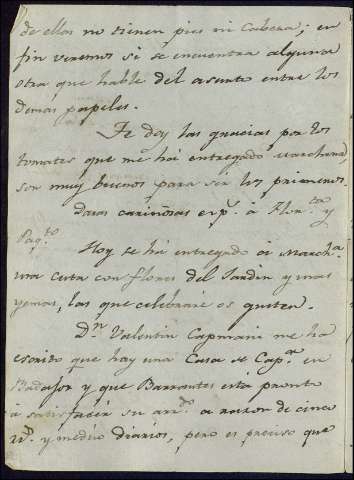 de ellas no tienen pies ni Cabeza; en
fin veremos si se encuentra alguna
otra que hable del asunto entre los
demas papeles.
Te doy las gracias por los
tomates que me há entregado Marchana,
son muy buenos para ser los primeros.
Daras cariñosas exp.s á Flor.ta y
Paq.to
Hoy se há entregado á March.a
una Cesta con flores del Jardin y unas
yemas, las que celebraré os gusten.
D.n Valentin Capmani me ha
escrito que hay una Casa de Cap.a en
Badajoz y que Barrantes está pronto
á satisfacer su arr.do a razon de cinco
rr.s y medio diarios, pero es preciso que